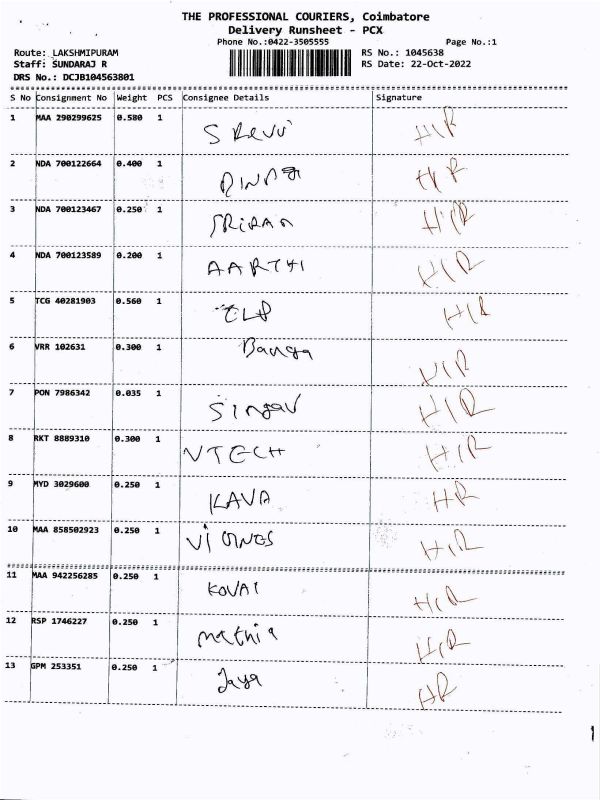 THE PROFESSIONAL COURIERS, Coimbatore
Delivery Runsheet - PCX
Phone No.:0422-3505555 Page No.:1
Route: LAKSHMIPURAM RS No.: 1045638
Staff: SUNDARAJ R RS Date: 22-Oct-2022
DRS No.: DCJB104563801
S No Consignment No Weight PCS Consignee Details Signature
1 MAA 290299625 0.580 1 HIR
2 NDA 700122664 0.400 1 HIR
3 NDA 700123467 0.250 1 SRIRAM HIR
4 NDA 700123589 0.200 1 AARTHI HIR
5 TCG 40281903 0.560 1 HIR
6 VRR 102631 0.300 1 Banga HIR
7 PON 7986342 0.035 1 Singav HIR
8 RKT 8889310 0.300 1 VTECH HIR
9 MYD 3029600 0.250 1 KAVA HR
10 MAA 858502923 0.250 1 HIR
11 MAA 942256285 0.250 1 KOVAI HIR
12 RSP 1746227 0.250 1 mathia HIR
13 GPM 253351 0.250 1 Jaya HR